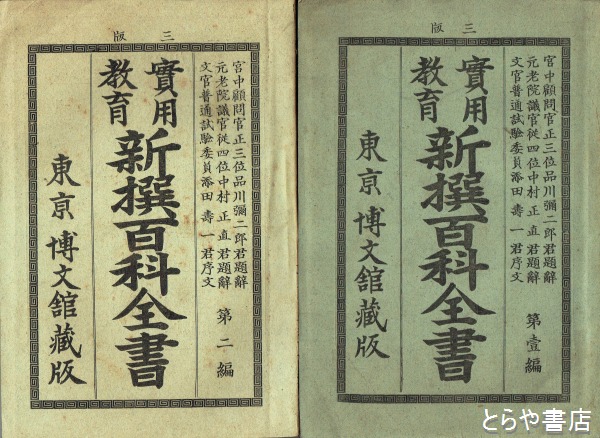 版 三
宮中顧問官正三位品川彌二郎君題辭
元老院議官從四位中村正直君題辭
文官普通試驗委員添田壽一君序文
第二編
實用
教育
新撰百科全書
東京 博文館藏版
版 三
宮中顧問官正三位品川彌二郎君題辭
元老院議官從四位中村正直君題辭
文官普通試驗委員添田壽一君序文
第壹編
實用
教育
新撰百科全書
東京 博文館藏版
とらや書店